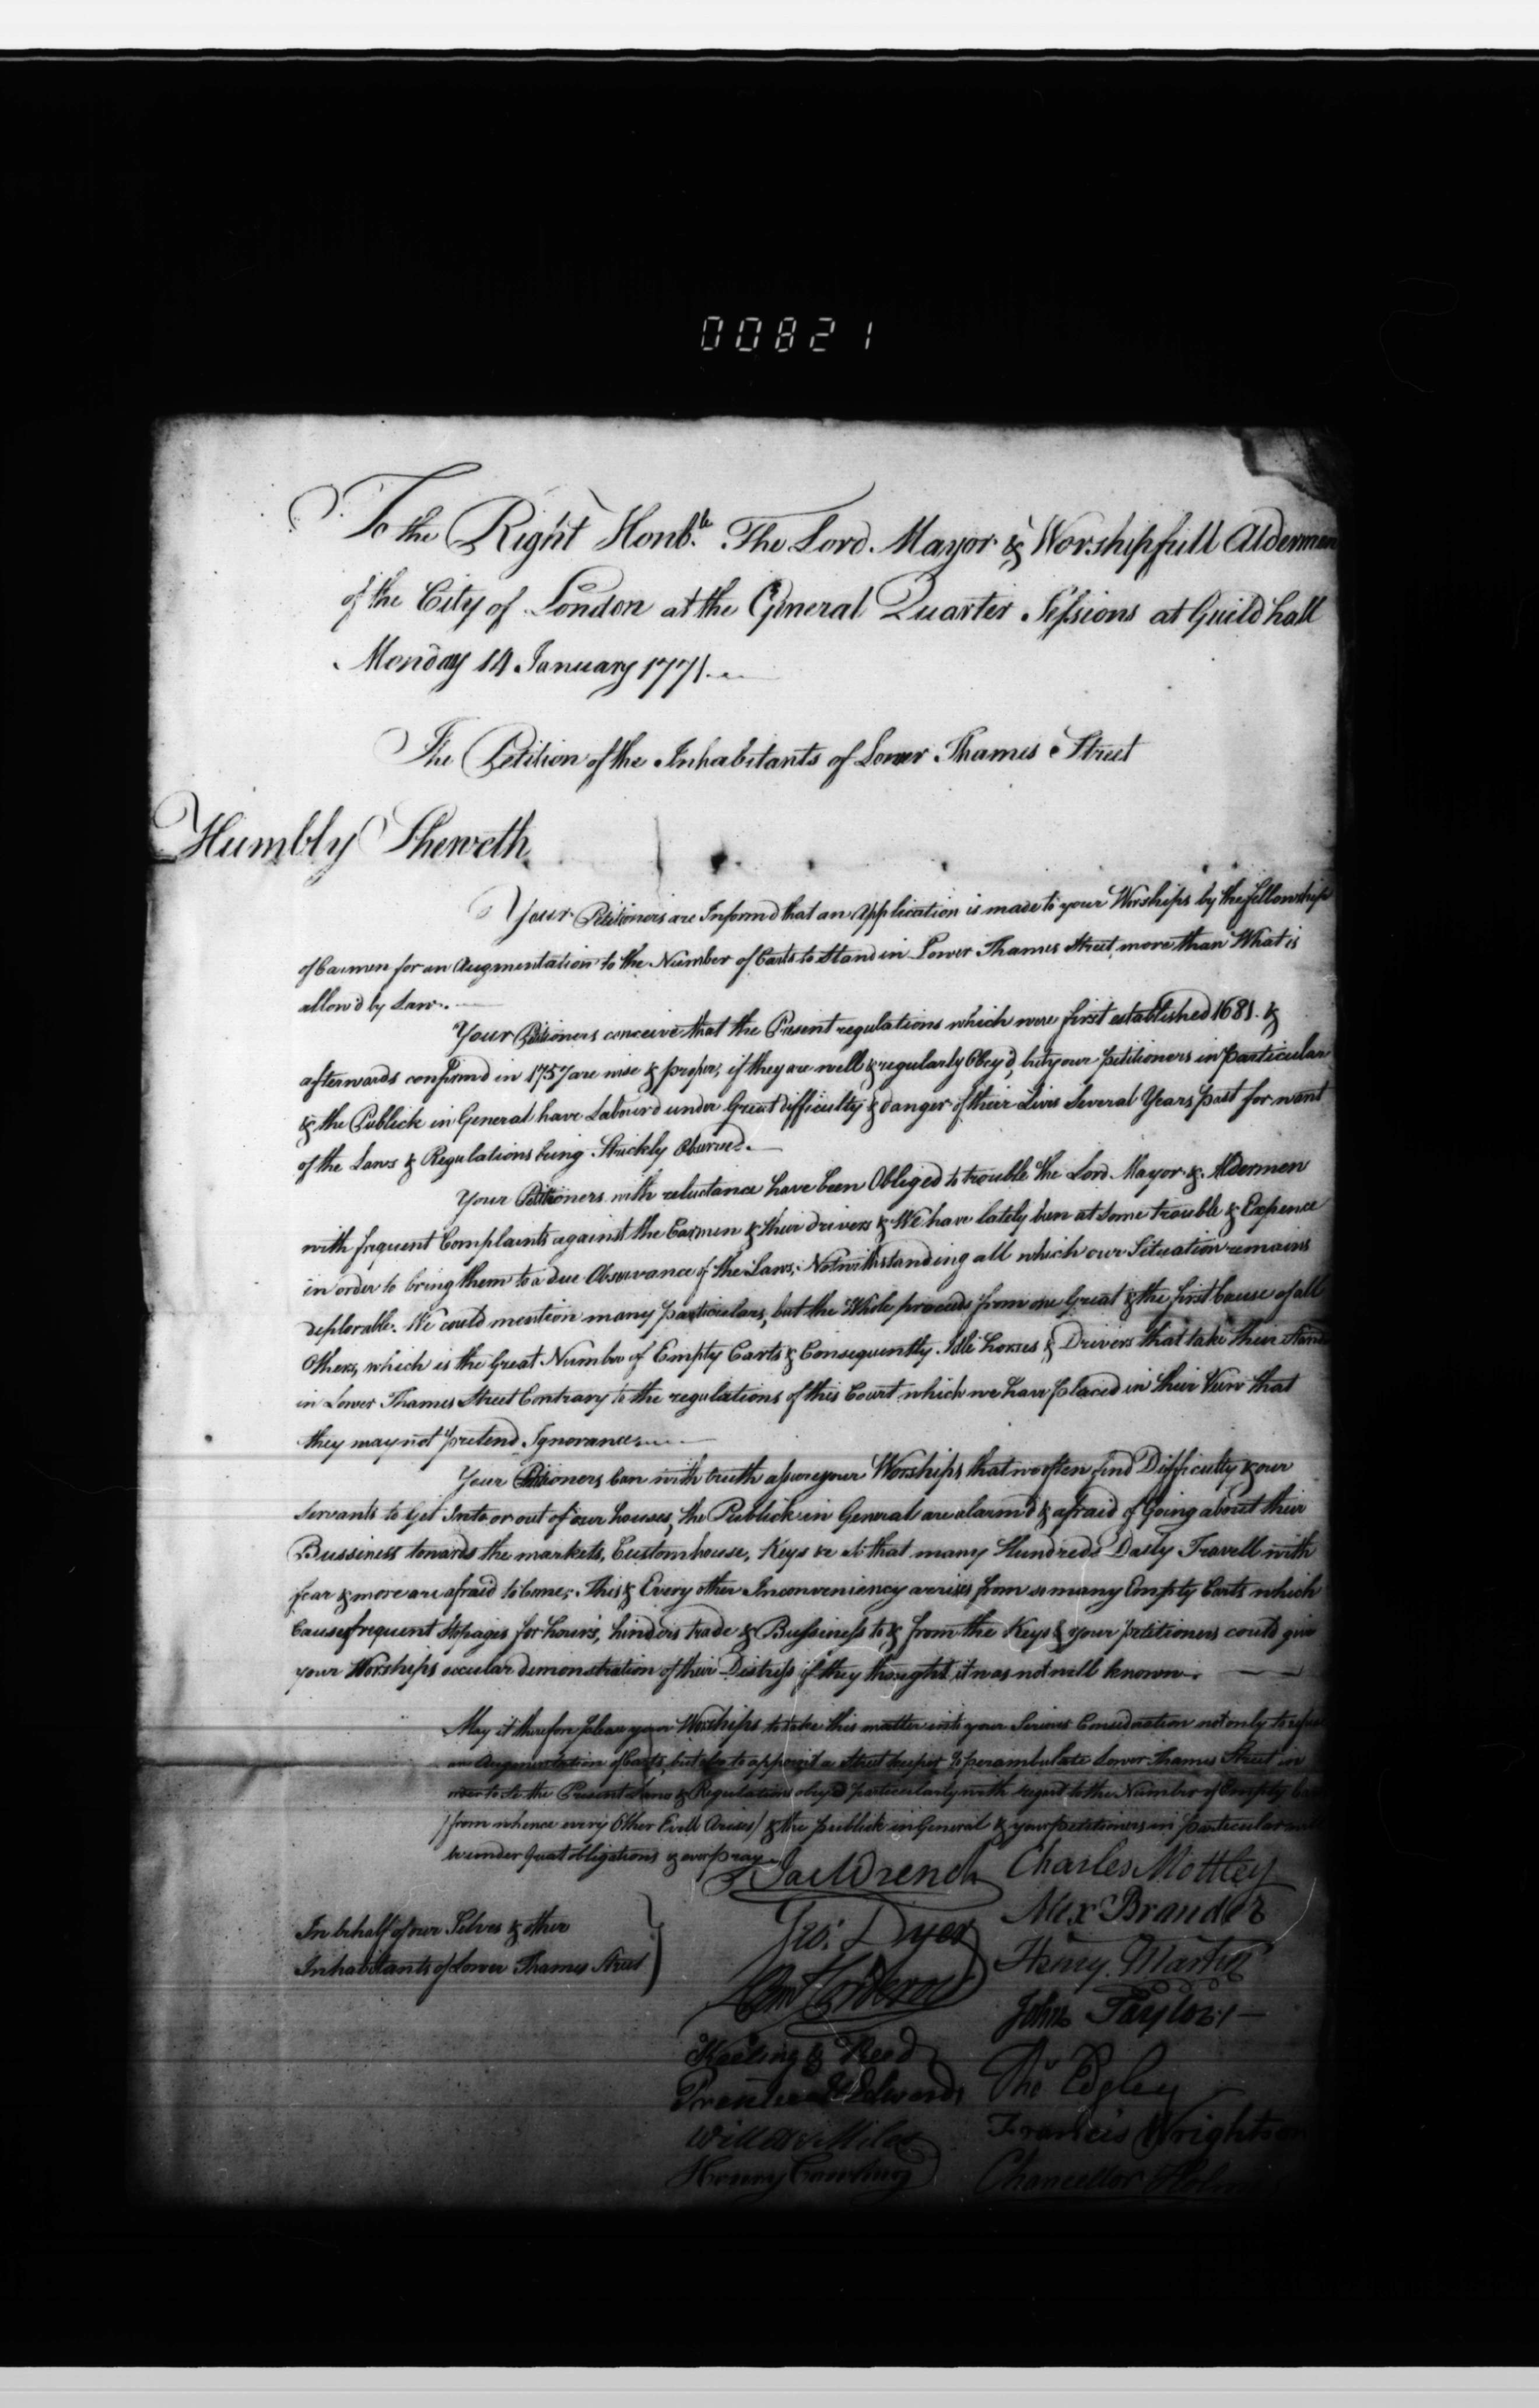 00821
To the Right Honb.le The Lord Mayor & Worshipfull Aldermen
of the City of London at the General Quarter Sessions at Guildhall
Monday 14 January 1771
The Petition of the Inhabitants of Lower Thames Street
Humbly Sheweth
Your Petitioners are Inform'd that an Application is made to your Worships by the fellowship
of Carmen for an Augmentation to the Number of Carts to Stand in Lower Thames Street, more than What is
allow'd by Law.
Your Petitioners conceive that the Present regulations which were first established 1681 &
afterwards confirm'd in 1757 are wise & proper, if they are well & regularly Obey'd, but your petitioners in particular
& the Publick in General have Labour'd under Great difficulty & danger of their Lives Several Years past for want
of the Laws & Regulations being Strickly Observed.
Your Petitioners with reluctance have been Obliged to trouble the Lord Mayor & Aldermen
with frequent Complaints against the Carmen & their drivers & We have lately been at some trouble & Expence
in order to bring them to a due Observance of the Laws; Notwithstanding all which our Situation remains
deplorable. We could mention many particulars, but the Whole proceeds from one Great & the first Cause of all
Others, which is the Great Number of Empty Carts & Consequently Idle horses & Drivers that take their Stand
in Lower Thames Street Contrary to the regulations of this Court which we have placed in their View that
they may not pretend Ignorance
Your Petitioners Can with truth assure your Worships that we often find Difficulty & our
Servants to Get Into or out of our houses, the Publick in General are alarm'd & afraid of Going about their
Bussiness towards the markets, Customhouse, Keys &c so that many Hundreds Daily Travell with
fear & more are afraid to Come; This & Every other Inconveniency arrises from so many Empty Carts which
Cause frequent Stopages for hours, hinders trade & Bussiness to & from the Keys & your petitioners could give
your Worships occular demonstration of their Distress if they thought it was not well known.
May it therefore please your Worships to take this matter into your Serious Consideration not only to refuse
an Augmentation of Carts, but also to appoint a Street keeper to perambulate Lower Thames Street in
order to Se the Present Laws & Regulations obey'd particularly with regard to the Number of Empty Carts
(from whence every Other Evell Arises) & the publick in General & your petitioners in particular will
be under Great obligations & ever pray
In behalf of our Selves & other
Inhabitants of Lower Thames Street
Jas Wrench
Charles Mottley
Geo: Dyer
Alex Brander
Henry Martin
John Taylor
Keeling & Reed
Tho Edgley
Edwards
Francis Wrightson
Willett & Miles
Henry
Chancellor